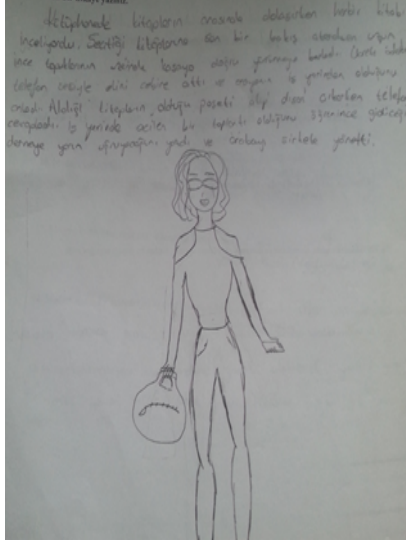 Kütüphanede kitapların arasında dolaşırken birkaç kitabı
inceliyordu. Seçtiği kitaplarına son bir bakış atarken uzun
ince topuklarının üzerinde kasaya doğru yürümeye başladı.
telefon sesiyle elini cebine attı ve arayanın iş yerinden olduğunu
anladı. Aldığı kitapların olduğu poşeti alıp dışarı çıkarken telefonu
cevapladı. İş yerinde acilen bir toplantı olduğunu öğrenince gideceği
derneğe yarın uğrayacağını yazdı ve arabayı şirkete yöneltti.